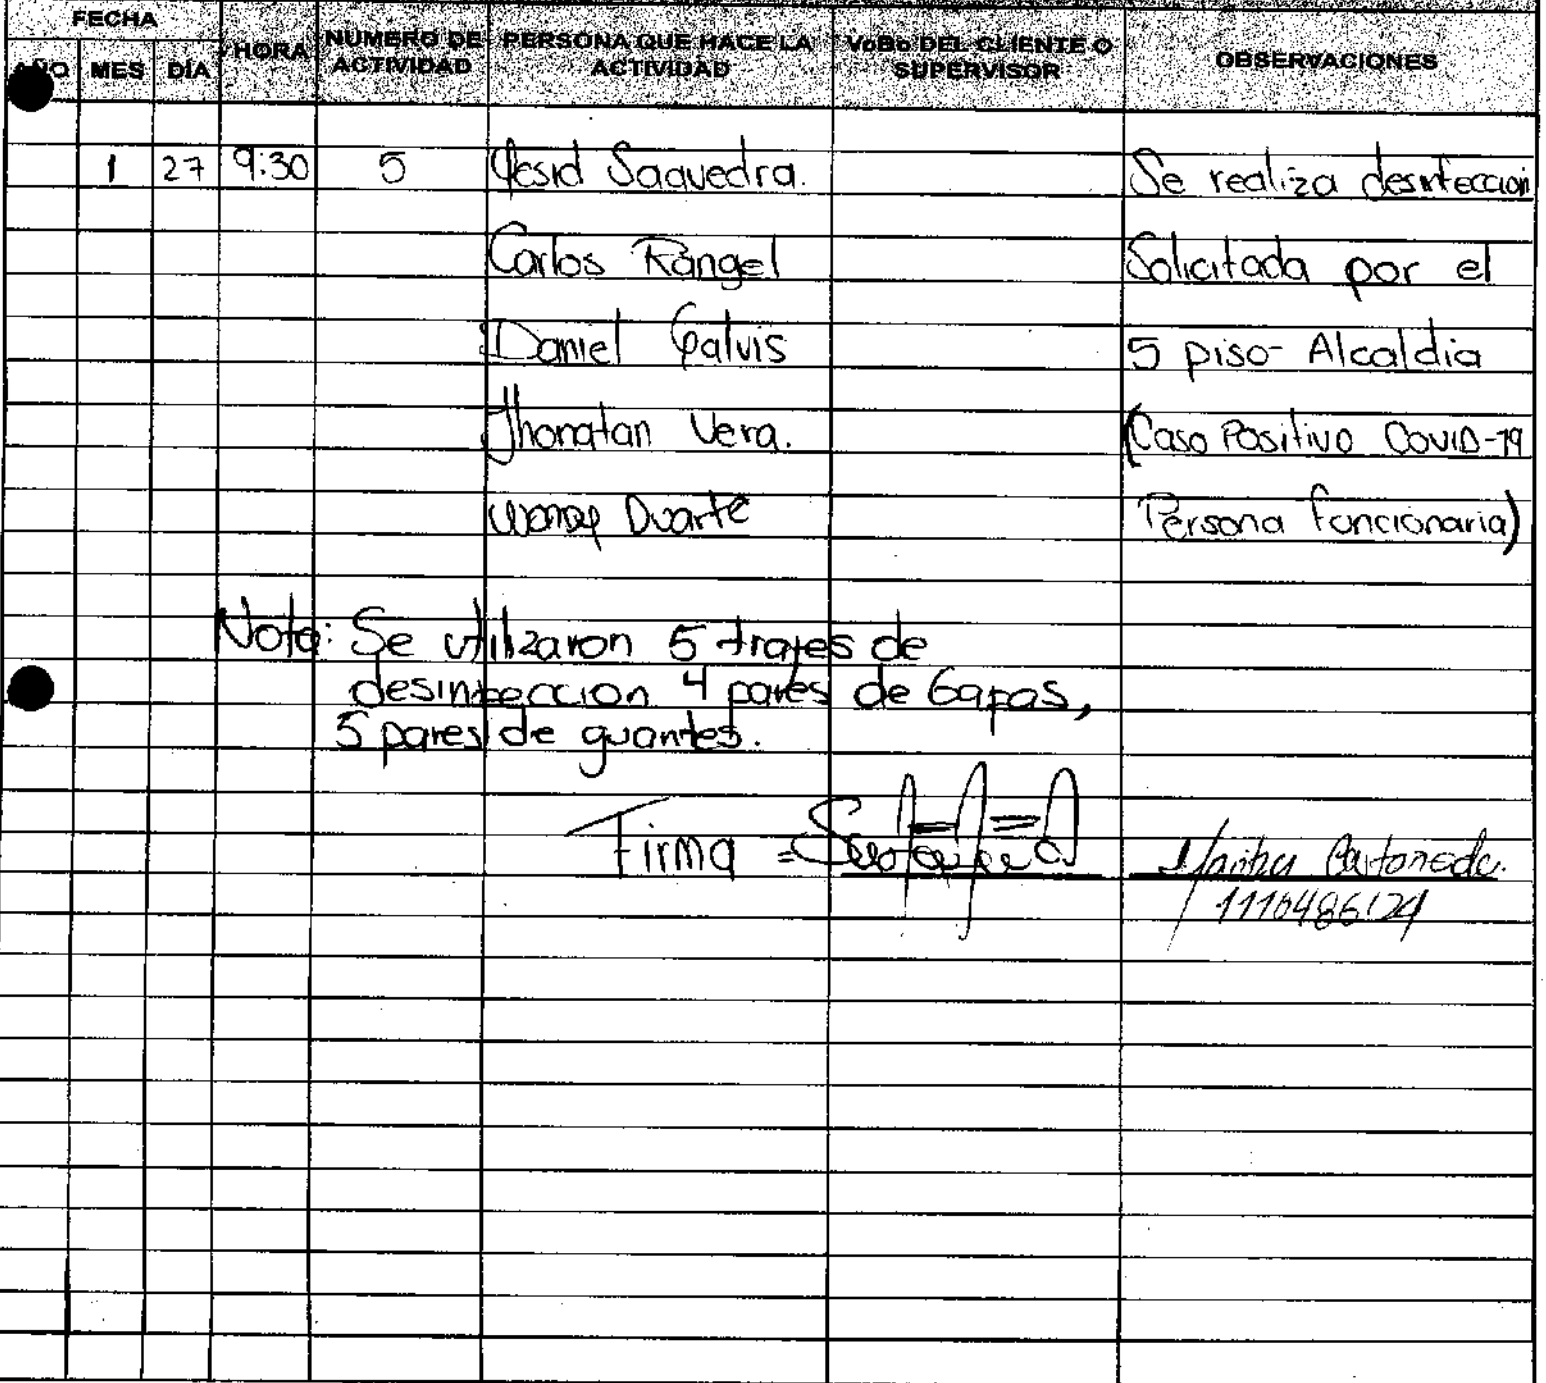 FECHA
AÑO MES DÍA HORA NÚMERO DE ACTIVIDAD PERSONA QUE HACE LA ACTIVIDAD VoBo DEL CLIENTE O SUPERVISOR OBSERVACIONES
1 27 9:30 5 Yesid Saavedra. Se realiza desinfeccion
Carlos Rangel Solicitada por el
Daniel Galvis 5 piso- Alcaldia
Jhonatan Vera. (Caso Positivo COVID-19
Duarte Persona funcionaria)
Nota: Se utilizaron 5 trajes de
desinfeccion 4 pares de Gafas,
5 pares de guantes.
Firma =